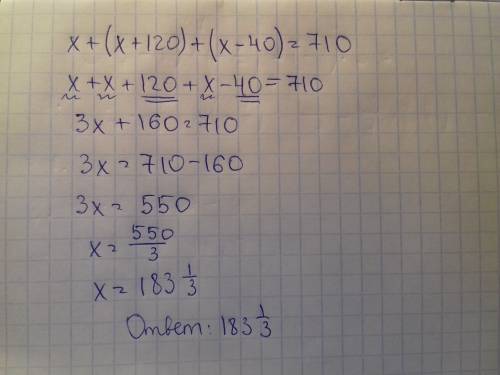 x + (x+120) + (x-40) = 710
x + x + 120 + x - 40 = 710
3x + 160 = 710
3x = 710 - 160
3x = 550
x = 550/3
x = 183 1/3
Ответ: 183 1/3